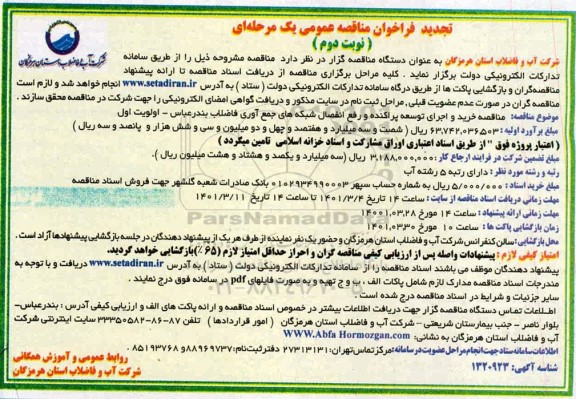 تجدید فراخوان مناقصه عمومی یک مرحله‌ای
( نوبت دوم )
شرکت آب و فاضلاب استان هرمزگان
شرکت آب و فاضلاب استان هرمزگان به عنوان دستگاه مناقصه گزار در نظر دارد مناقصه مشروحه ذیل را از طریق سامانه
تدارکات الکترونیکی دولت برگزار نماید . کلیه مراحل برگزاری مناقصه از دریافت اسناد مناقصه تا ارائه پیشنهاد
مناقصه‌گران و بازگشایی پاکت ها از طریق درگاه سامانه تدارکات الکترونیکی دولت ( ستاد ) به آدرس www.setadiran.ir انجام خواهد شد و لازم است
مناقصه گران در صورت عدم عضویت قبلی، مراحل ثبت نام در سایت مذکور و دریافت گواهی امضای الکترونیکی را جهت شرکت در مناقصه محقق سازند .
موضوع مناقصه: مناقصه خرید و اجرای توسعه پراکنده و رفع انفصال شبکه های جمع آوری فاضلاب بندرعباس - اولویت اول
مبلغ برآورد اولیه : ۶۳,۷۴۲,۰۳۶,۵۰۳ ریال ( شصت و سه میلیارد و هفتصد و چهل و دو میلیون و سی و شش هزار و پانصد و سه ریال )
( اعتبار پروژه فوق " از طریق اسناد اعتباری اوراق مشارکت و اسناد خزانه اسلامی تامین میگردد )
مبلغ تضمین شرکت در فرایند ارجاع کار : ۳,۱۸۸,۰۰۰,۰۰۰ ریال (سه میلیارد و یکصد و هشتاد و هشت میلیون ریال ).
رتبه و رشته مورد نظر : دارای رتبه ۵ رشته آب
مبلغ خرید اسناد : ۵/۰۰۰/۰۰۰ ریال به شماره حساب سپهر ۰۱۰۲۹۳۴۹۹۰۰۰۳ بانک صادرات شعبه گلشهر جهت فروش اسناد مناقصه
مهلت زمانی دریافت اسناد مناقصه از سایت : ساعت ۱۴ تاریخ ۱۴۰۱/۳/۴ تا ساعت ۱۴ تاریخ ۱۴۰۱/۳/۱۱
مهلت زمانی ارائه پیشنهاد : ساعت ۱۴ مورخ ۱۴۰۱,۰۳,۲۸
زمان بازگشایی پاکت ها : ساعت ۱۰ مورخ ۱۴۰۱,۰۳,۳۰
محل بازگشایی: سالن کنفرانس شرکت آب و فاضلاب استان هرمزگان و حضور یک نفر نماینده از طرف هر یک از پیشنهاد دهندگان در جلسه بازگشایی پیشنهادها آزاد است .
امتیاز کیفی لازم : پیشنهادات واصله پس از ارزیابی کیفی مناقصه گران و احراز حداقل امتیاز لازم (۶۵٪) بازگشایی خواهد گردید.
پیشنهاد دهندگان موظف می باشند اسناد مناقصه را از سامانه تدارکات الکترونیکی دولت ( ستاد ) به آدرس www.setadiran.ir دریافت و با توجه به
مندرجات اسناد مناقصه مدارک لازم شامل پاکات الف ، ب و ج تهیه و به صورت فایلهای pdf در سامانه فوق درج نمایند .
سایر جزئیات و شرایط در اسناد مناقصه درج شده است
اطلاعات تماس دستگاه مناقصه گزار جهت دریافت اطلاعات بیشتر در خصوص اسناد مناقصه و ارائه پاکت های الف و ارزیابی کیفی آدرس : بندرعباس-
بلوار ناصر - جنب بیمارستان شریعتی - شرکت آب و فاضلاب استان هرمزگان ( امور قراردادها ) تلفن ۸۷-۸۶-۳۳۳۵۰۵۸۲ سایت اینترنتی شرکت
آب و فاضلاب استان هرمزگان به نشانی: WWW.Abfa Hormozgan.com
اطلاعات سامانه ستاد جهت انجام مراحل عضویت در سامانه: مرکز تماس تهران: ۲۷۳۱۳۱۳۱ دفتر ثبت نام: ۸۸۹۶۹۷۳۷ و ۸۵۱۹۳۷۶۸ .
شناسه آگهی: ۱۳۲۰۹۲۳
روابط عمومی و آموزش همگانی
شرکت آب و فاضلاب استان هرمزگان
ParsNamadData